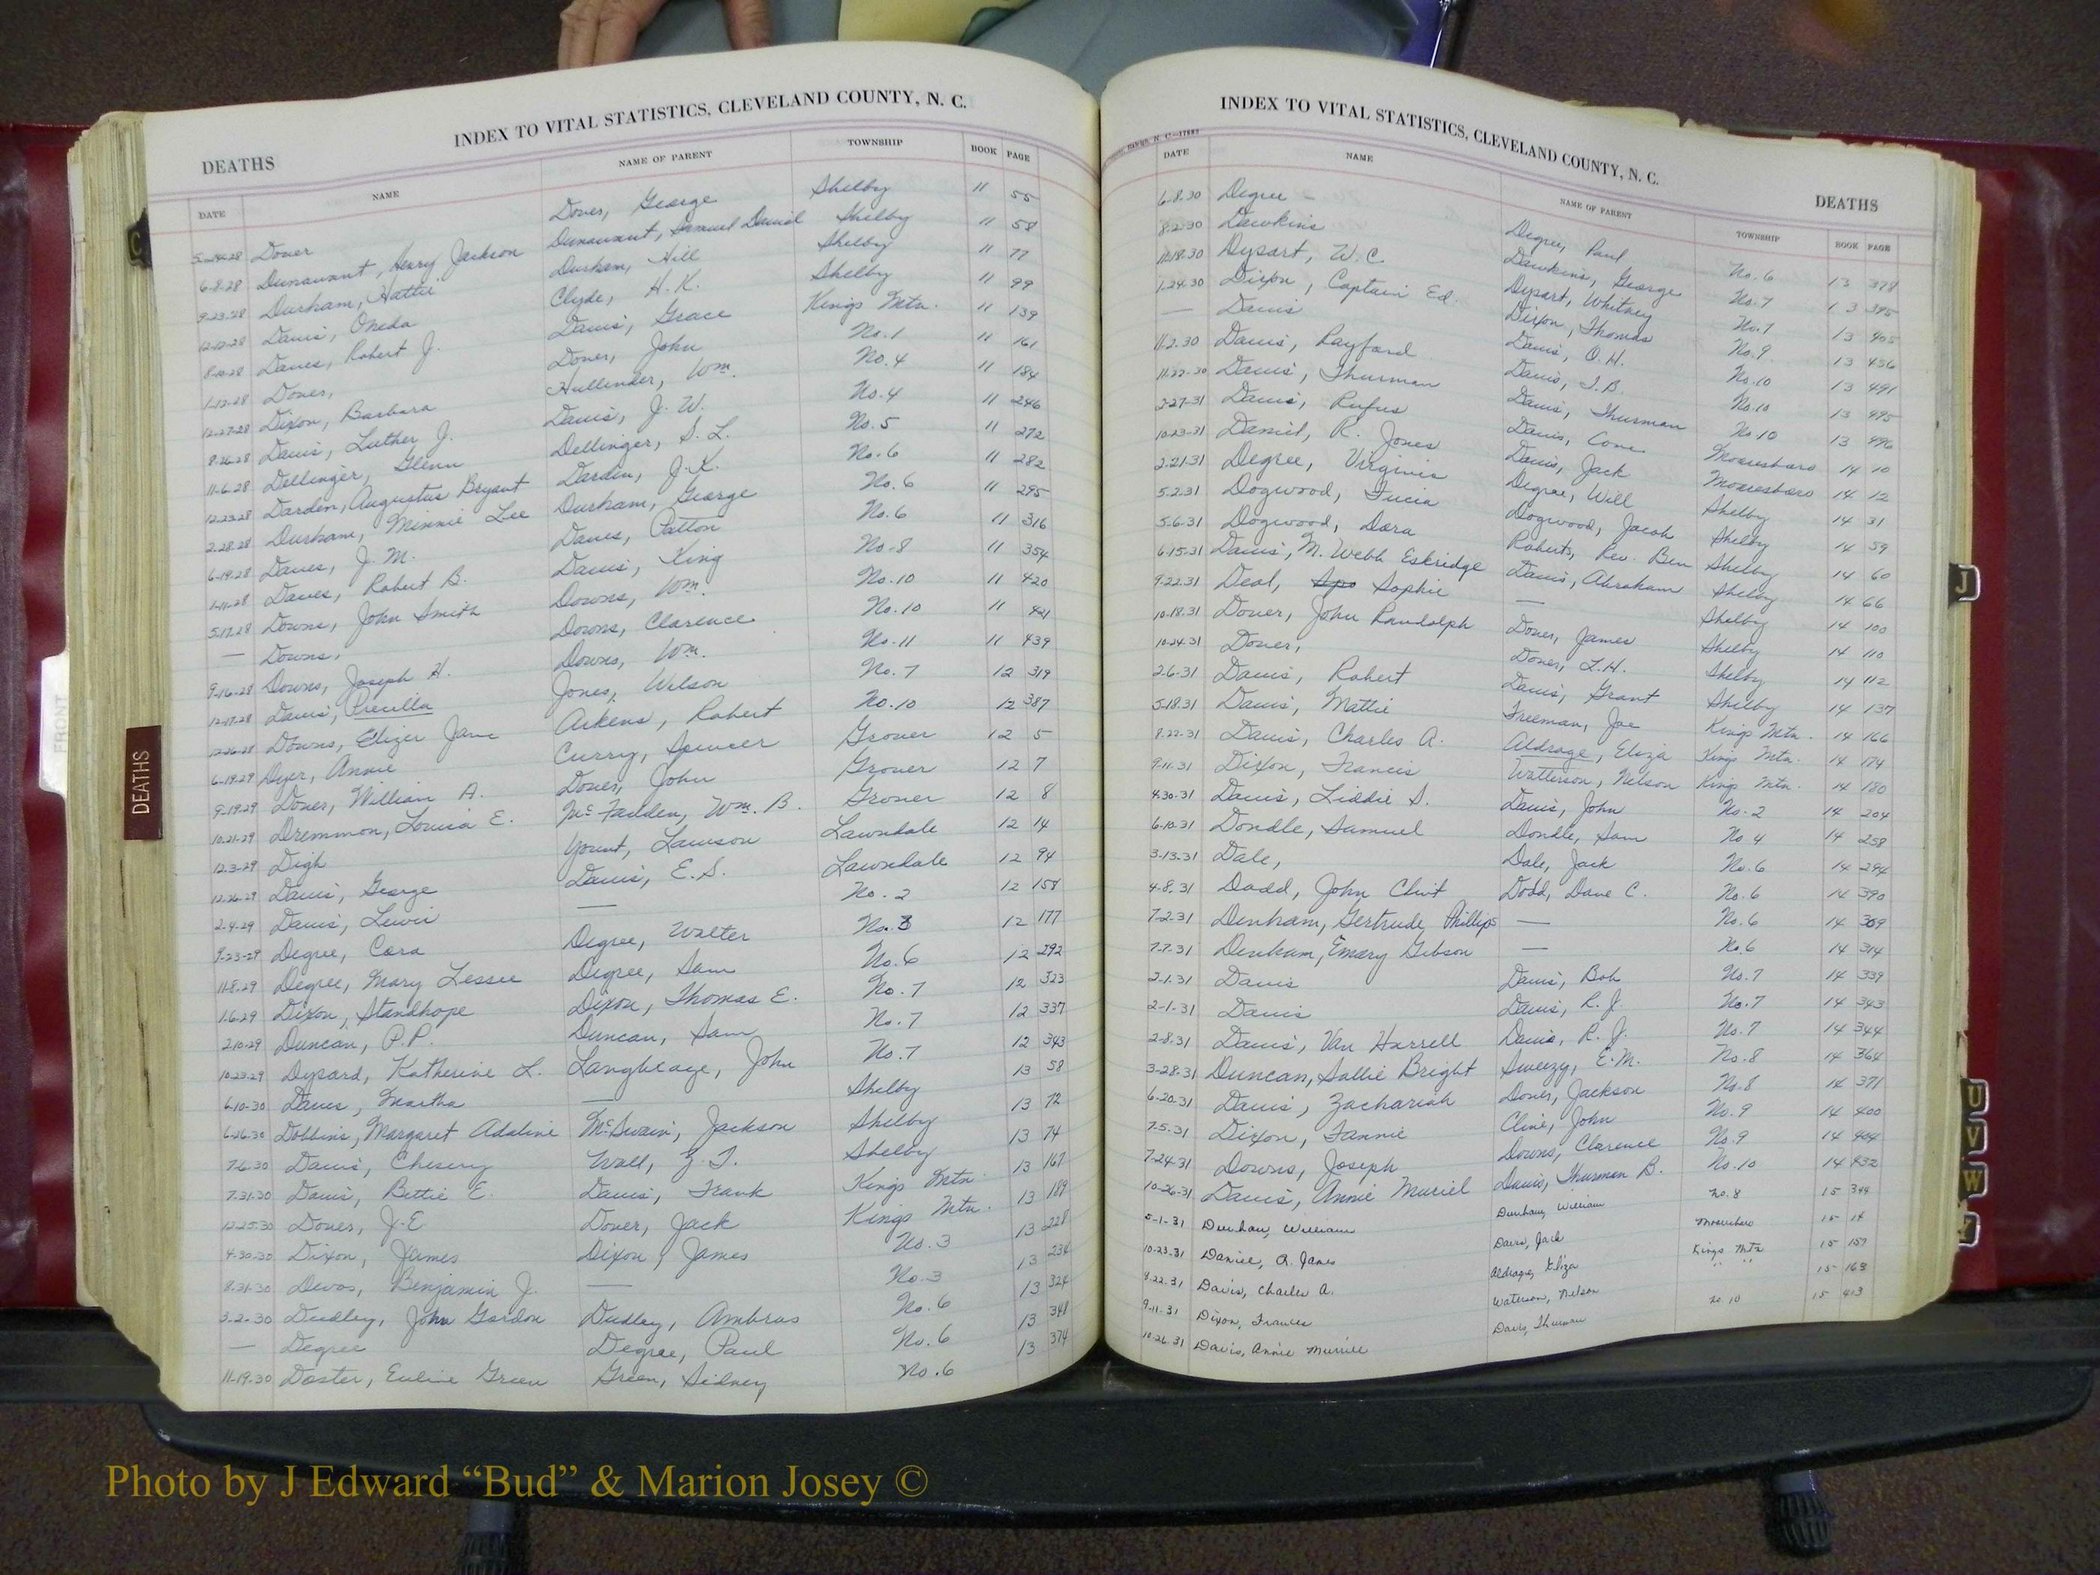 INDEX TO VITAL STATISTICS, CLEVELAND COUNTY, N. C.
DEATHS
DATE NAME NAME OF PARENT TOWNSHIP BOOK PAGE
5-24-28 Dover Dover, George Shelby 11 55
6-8-28 Dunavant, Henry Jackson Dunavant, Samuel Daniel Shelby 11 58
9-23-28 Durham, Hattie Durham, Hill Shelby 11 77
12-12-28 Davis, Oneda Clyde, H. K. Shelby 11 99
8-10-28 Daves, Robert J. Davis, Grace Kings Mtn. 11 139
1-12-28 Dover, Dover, John No. 1 11 161
12-27-28 Dixon, Barbara Hullender, Wm. No. 4 11 184
8-26-28 Davis, Luther J. Davis, J. W. No. 4 11 246
11-6-28 Dellinger, Glenn Dellinger, S. L. No. 5 11 272
12-23-28 Darden, Augustus Bryant Darden, J. K. No. 6 11 282
2-28-28 Durham, Minnie Lee Durham, George No. 6 11 295
6-19-28 Daves, J. M. Daves, Patton No. 6 11 316
1-11-28 Daves, Robert B. Davis, King No. 8 11 354
5-17-28 Downs, John Smith Downs, Wm. No. 10 11 420
— Downs, Downs, Clarence No. 10 11 421
9-16-28 Downs, Joseph H. Downs, Wm. No. 11 11 439
12-17-28 Davis, Precilla Jones, Wilson No. 7 12 319
12-26-28 Downs, Elizer Jane Aikens, Robert No. 10 12 387
6-19-29 Dyer, Annie Curry, Spencer Grover 12 5
9-19-29 Dover, William A. Dover, John Grover 12 7
10-21-29 Dremmon, Louisa E. McFadden, Wm. B. Grover 12 8
12-3-29 Digh Yount, Lawson Lawndale 12 14
12-26-29 Davis, George Davis, E. S. Lawndale 12 94
2-4-29 Davis, Lewis — No. 2 12 158
9-23-29 Degree, Cora Degree, Walter No. 3 12 177
11-8-29 Degree, Mary Lessee Degree, Sam No. 6 12 292
1-6-29 Dixon, Standhope Dixon, Thomas E. No. 7 12 323
2-10-29 Duncan, P. P. Duncan, Sam No. 7 12 337
10-23-29 Dysard, Katherine L. Langbeage, John No. 7 12 343
6-10-30 Daves, Martha — Shelby 13 58
6-26-30 Dobbins, Margaret Adaline McSwain, Jackson Shelby 13 72
7-6-30 Davis, Chesery Wall, Z. T. Shelby 13 74
7-31-30 Davis, Bettie E. Davis, Frank Kings Mtn. 13 167
12-25-30 Dover, J. E Dover, Jack Kings Mtn. 13 189
4-30-30 Dixon, James Dixon, James No. 3 13 228
8-31-30 Devos, Benjamin J. — No. 3 13 234
3-2-30 Dudley, John Gordon Dudley, Ambros No. 6 13 324
— Degree Degree, Paul No. 6 13 348
11-19-30 Doster, Euline Green Green, Sidney No. 6 13 374
INDEX TO VITAL STATISTICS, CLEVELAND COUNTY, N. C.
DEATHS
DATE NAME NAME OF PARENT TOWNSHIP BOOK PAGE
6-8-30 Degree — Degree, Paul No. 6 13 378
8-2-30 Dawkins Dawkins, George No. 7 13 395
11-18-30 Dysart, W. C. Dysart, Whitney No. 7 13 405
1-24-30 Dixon, Captain Ed. Dixon, Thomas No. 9 13 456
— Davis Davis, O. H. No. 10 13 491
11-2-30 Davis, Rayford Davis, T. B. No. 10 13 495
11-22-30 Davis, Thurman Davis, Thurman No 10 13 496
2-27-31 Davis, Rufus Davis, Cone Mooresboro 14 10
10-23-31 Daniel, R. Jones Davis, Jack Mooresboro 14 12
2-21-31 Degree, Virginia Degree, Will Shelby 14 31
5-2-31 Dogwood, Lucia Dogwood, Jacob Shelby 14 59
5-6-31 Dogwood, Dora Roberts, Rev. Ben Shelby 14 60
6-15-31 Davis, M. Webb Eskridge Davis, Abraham Shelby 14 66
9-22-31 Deal, Spo Sophie — Shelby 14 100
10-18-31 Dover, John Randolph Dover, James Shelby 14 110
10-24-31 Dover, Dover, L. H. Shelby 14 112
2-6-31 Davis, Robert Davis, Grant Shelby 14 137
5-18-31 Davis, Mattie Freeman, Joe Kings Mtn. 14 166
8-22-31 Davis, Charles A. Aldrage, Eliza Kings Mtn. 14 174
9-11-31 Dixon, Francis Watterson, Nelson Kings Mtn. 14 180
4-30-31 Davis, Liddie S. Davis, John No. 2 14 204
6-10-31 Dondle, Samuel Dondle, Sam No 4 14 258
3-13-31 Dale, Dale, Jack No. 6 14 294
4-8-31 Dodd, John Clint Dodd, Dave C. No. 6 14 390
7-2-31 Denham, Gertrude Phillips — No. 6 14 309
7-7-31 Denham, Emary Gibson — No. 6 14 314
2-1-31 Davis Davis, Bob No. 7 14 339
2-1-31 Davis Davis, R. J. No. 7 14 343
2-8-31 Davis, Van Harrell Davis, R. J. No. 7 14 344
3-28-31 Duncan, Sallie Bright Sweezy, E. M. No. 8 14 364
6-20-31 Davis, Zachariah Dover, Jackson No. 8 14 371
7-5-31 Dixon, Fannie Cline, John No. 9 14 400
7-24-31 Downs, Joseph Downs, Clarence No. 9 14 404
10-26-31 Davis, Annie Muriel Davis, Thurman B. No. 10 14 432
5-1-31 Durham, William Durham, William No. 8 15 344
10-23-31 Daniel, R. Jones Davis, Jack Mooresboro 15 14
8-22-31 Davis, Charles A. Aldrage, Eliza Kings Mtn 15 157
9-11-31 Dixon, Frances Waterson, Nelson " " 15 163
10-26-31 Davis, Annie Murriel Davis, Thurman No. 10 15 413
C
DEATHS
FRONT
J
U
V
W
Photo by J Edward “Bud” & Marion Josey ©